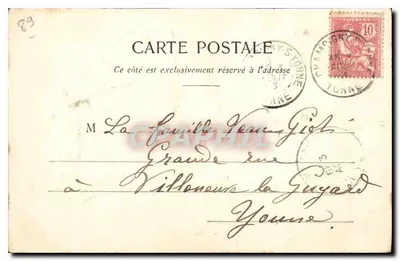 89
CARTE POSTALE
Ce côté est exclusivement réservé à l'adresse
POSTES
10
CHAMPIGNY
YONNE
NY-S-YONNE
M La famille
Grande rue
à Villeneuve la Guyard
Yonne